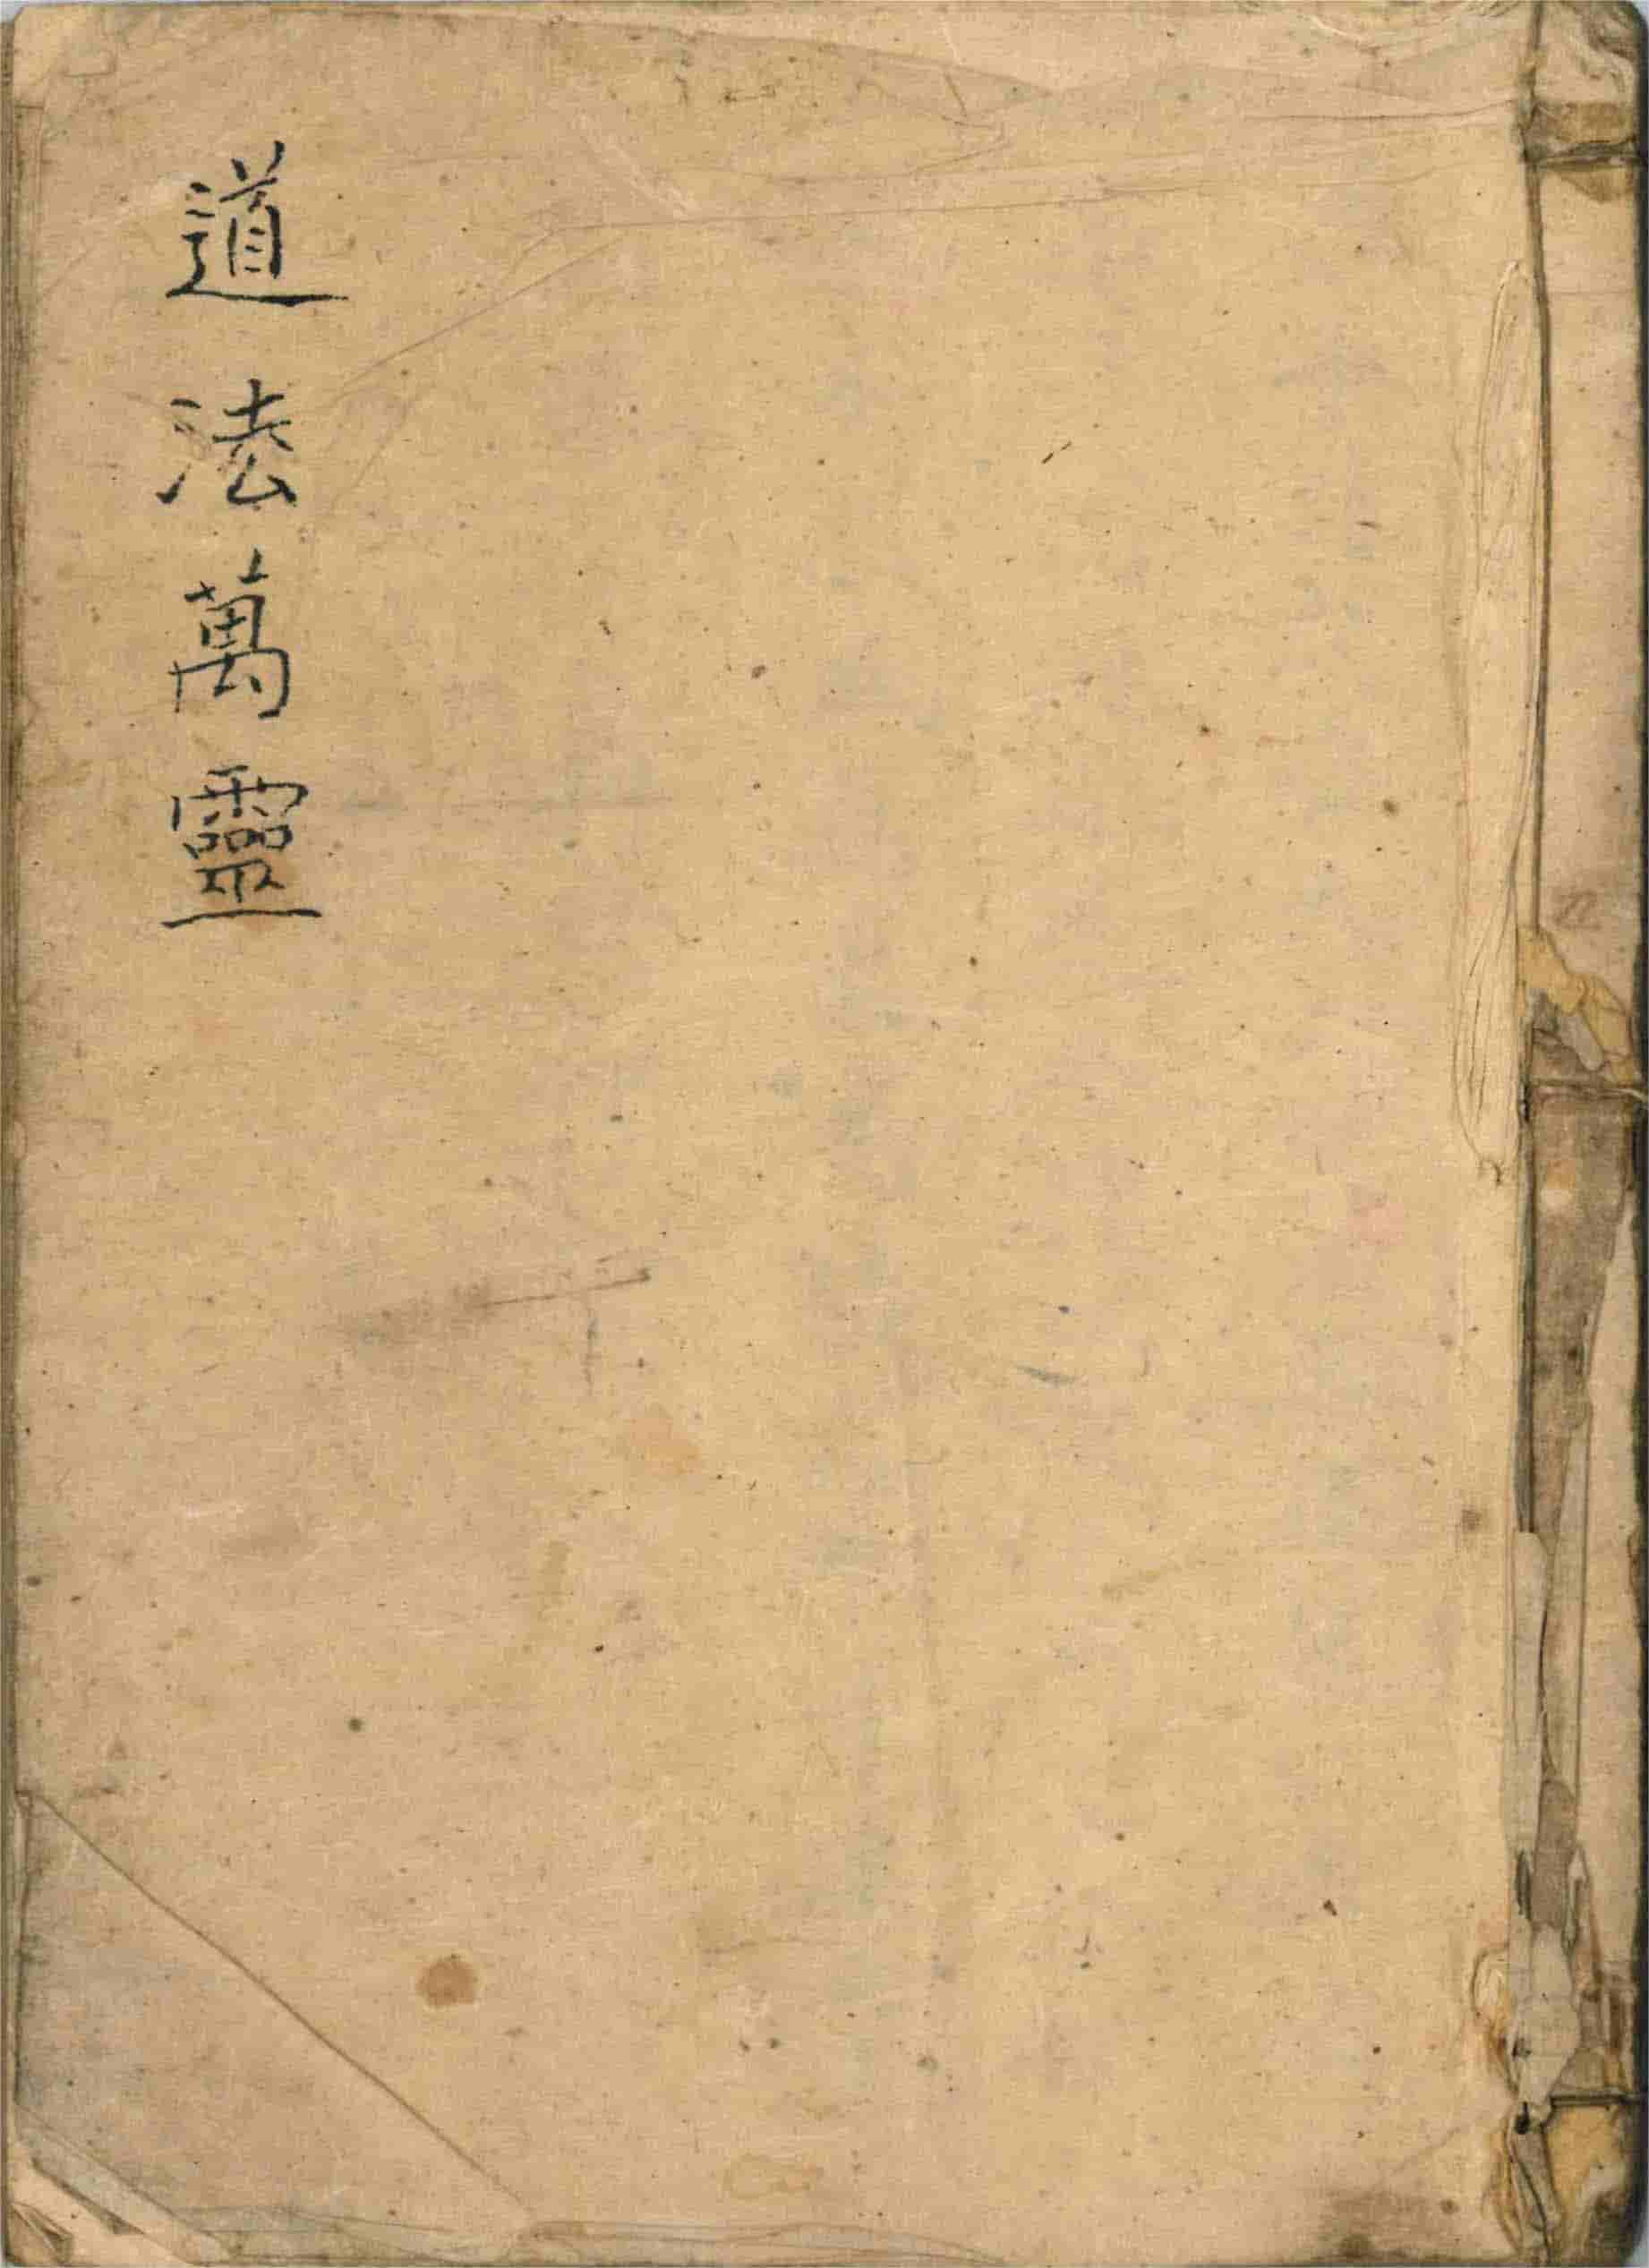 道法萬靈